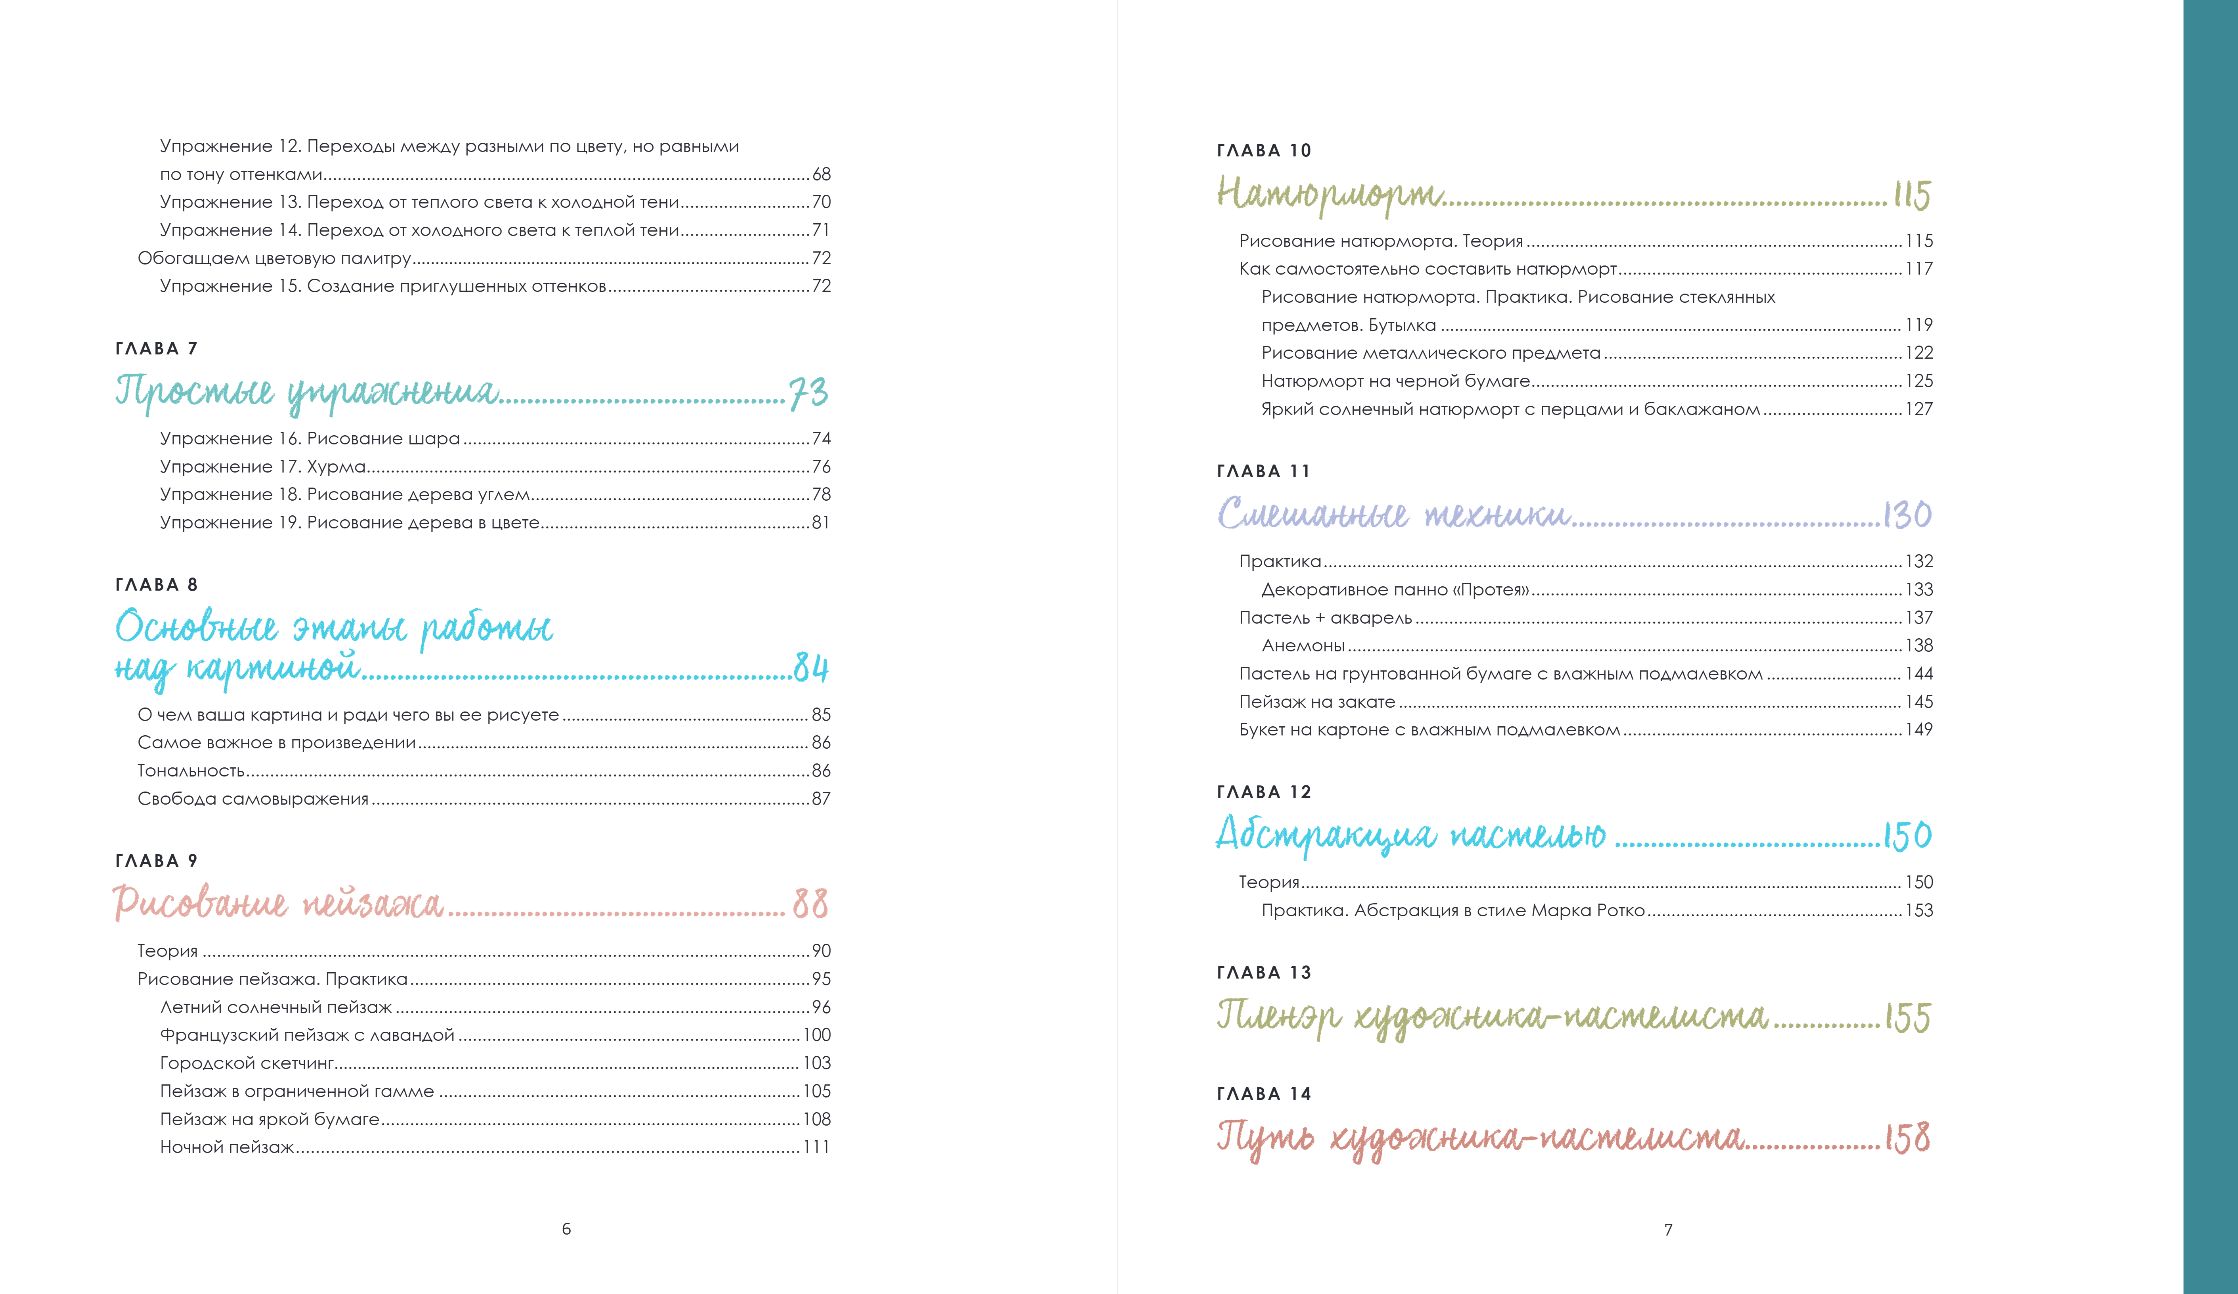 Упражнение 12. Переходы между разными по цвету, но равными
по тону оттенками....................68
Упражнение 13. Переход от теплого света к холодной тени....................70
Упражнение 14. Переход от холодного света к теплой тени....................71
Обогащаем цветовую палитру....................72
Упражнение 15. Создание приглушенных оттенков....................72
ГЛАВА 7
Простые упражнения....................73
Упражнение 16. Рисование шара....................74
Упражнение 17. Хурма....................76
Упражнение 18. Рисование дерева углем....................78
Упражнение 19. Рисование дерева в цвете....................81
ГЛАВА 8
Основные этапы работы
над картиной....................84
О чем ваша картина и ради чего вы ее рисуете....................85
Самое важное в произведении....................86
Тональность....................86
Свобода самовыражения....................87
ГЛАВА 9
Рисование пейзажа....................88
Теория....................90
Рисование пейзажа. Практика....................95
Летний солнечный пейзаж....................96
Французский пейзаж с лавандой....................100
Городской скетчинг....................103
Пейзаж в ограниченной гамме....................105
Пейзаж на яркой бумаге....................108
Ночной пейзаж....................111
6
ГЛАВА 10
Натюрморт....................115
Рисование натюрморта. Теория....................115
Как самостоятельно составить натюрморт....................117
Рисование натюрморта. Практика. Рисование стеклянных
предметов. Бутылка....................119
Рисование металлического предмета....................122
Натюрморт на черной бумаге....................125
Яркий солнечный натюрморт с перцами и баклажаном....................127
ГЛАВА 11
Смешанные техники....................130
Практика....................132
Декоративное панно «Протея»....................133
Пастель + акварель....................137
Анемоны....................138
Пастель на грунтованной бумаге с влажным подмалевком....................144
Пейзаж на закате....................145
Букет на картоне с влажным подмалевком....................149
ГЛАВА 12
Абстракция пастелью....................150
Теория....................150
Практика. Абстракция в стиле Марка Ротко....................153
ГЛАВА 13
Пленэр художника-пастелиста....................155
ГЛАВА 14
Путь художника-пастелиста....................158
7